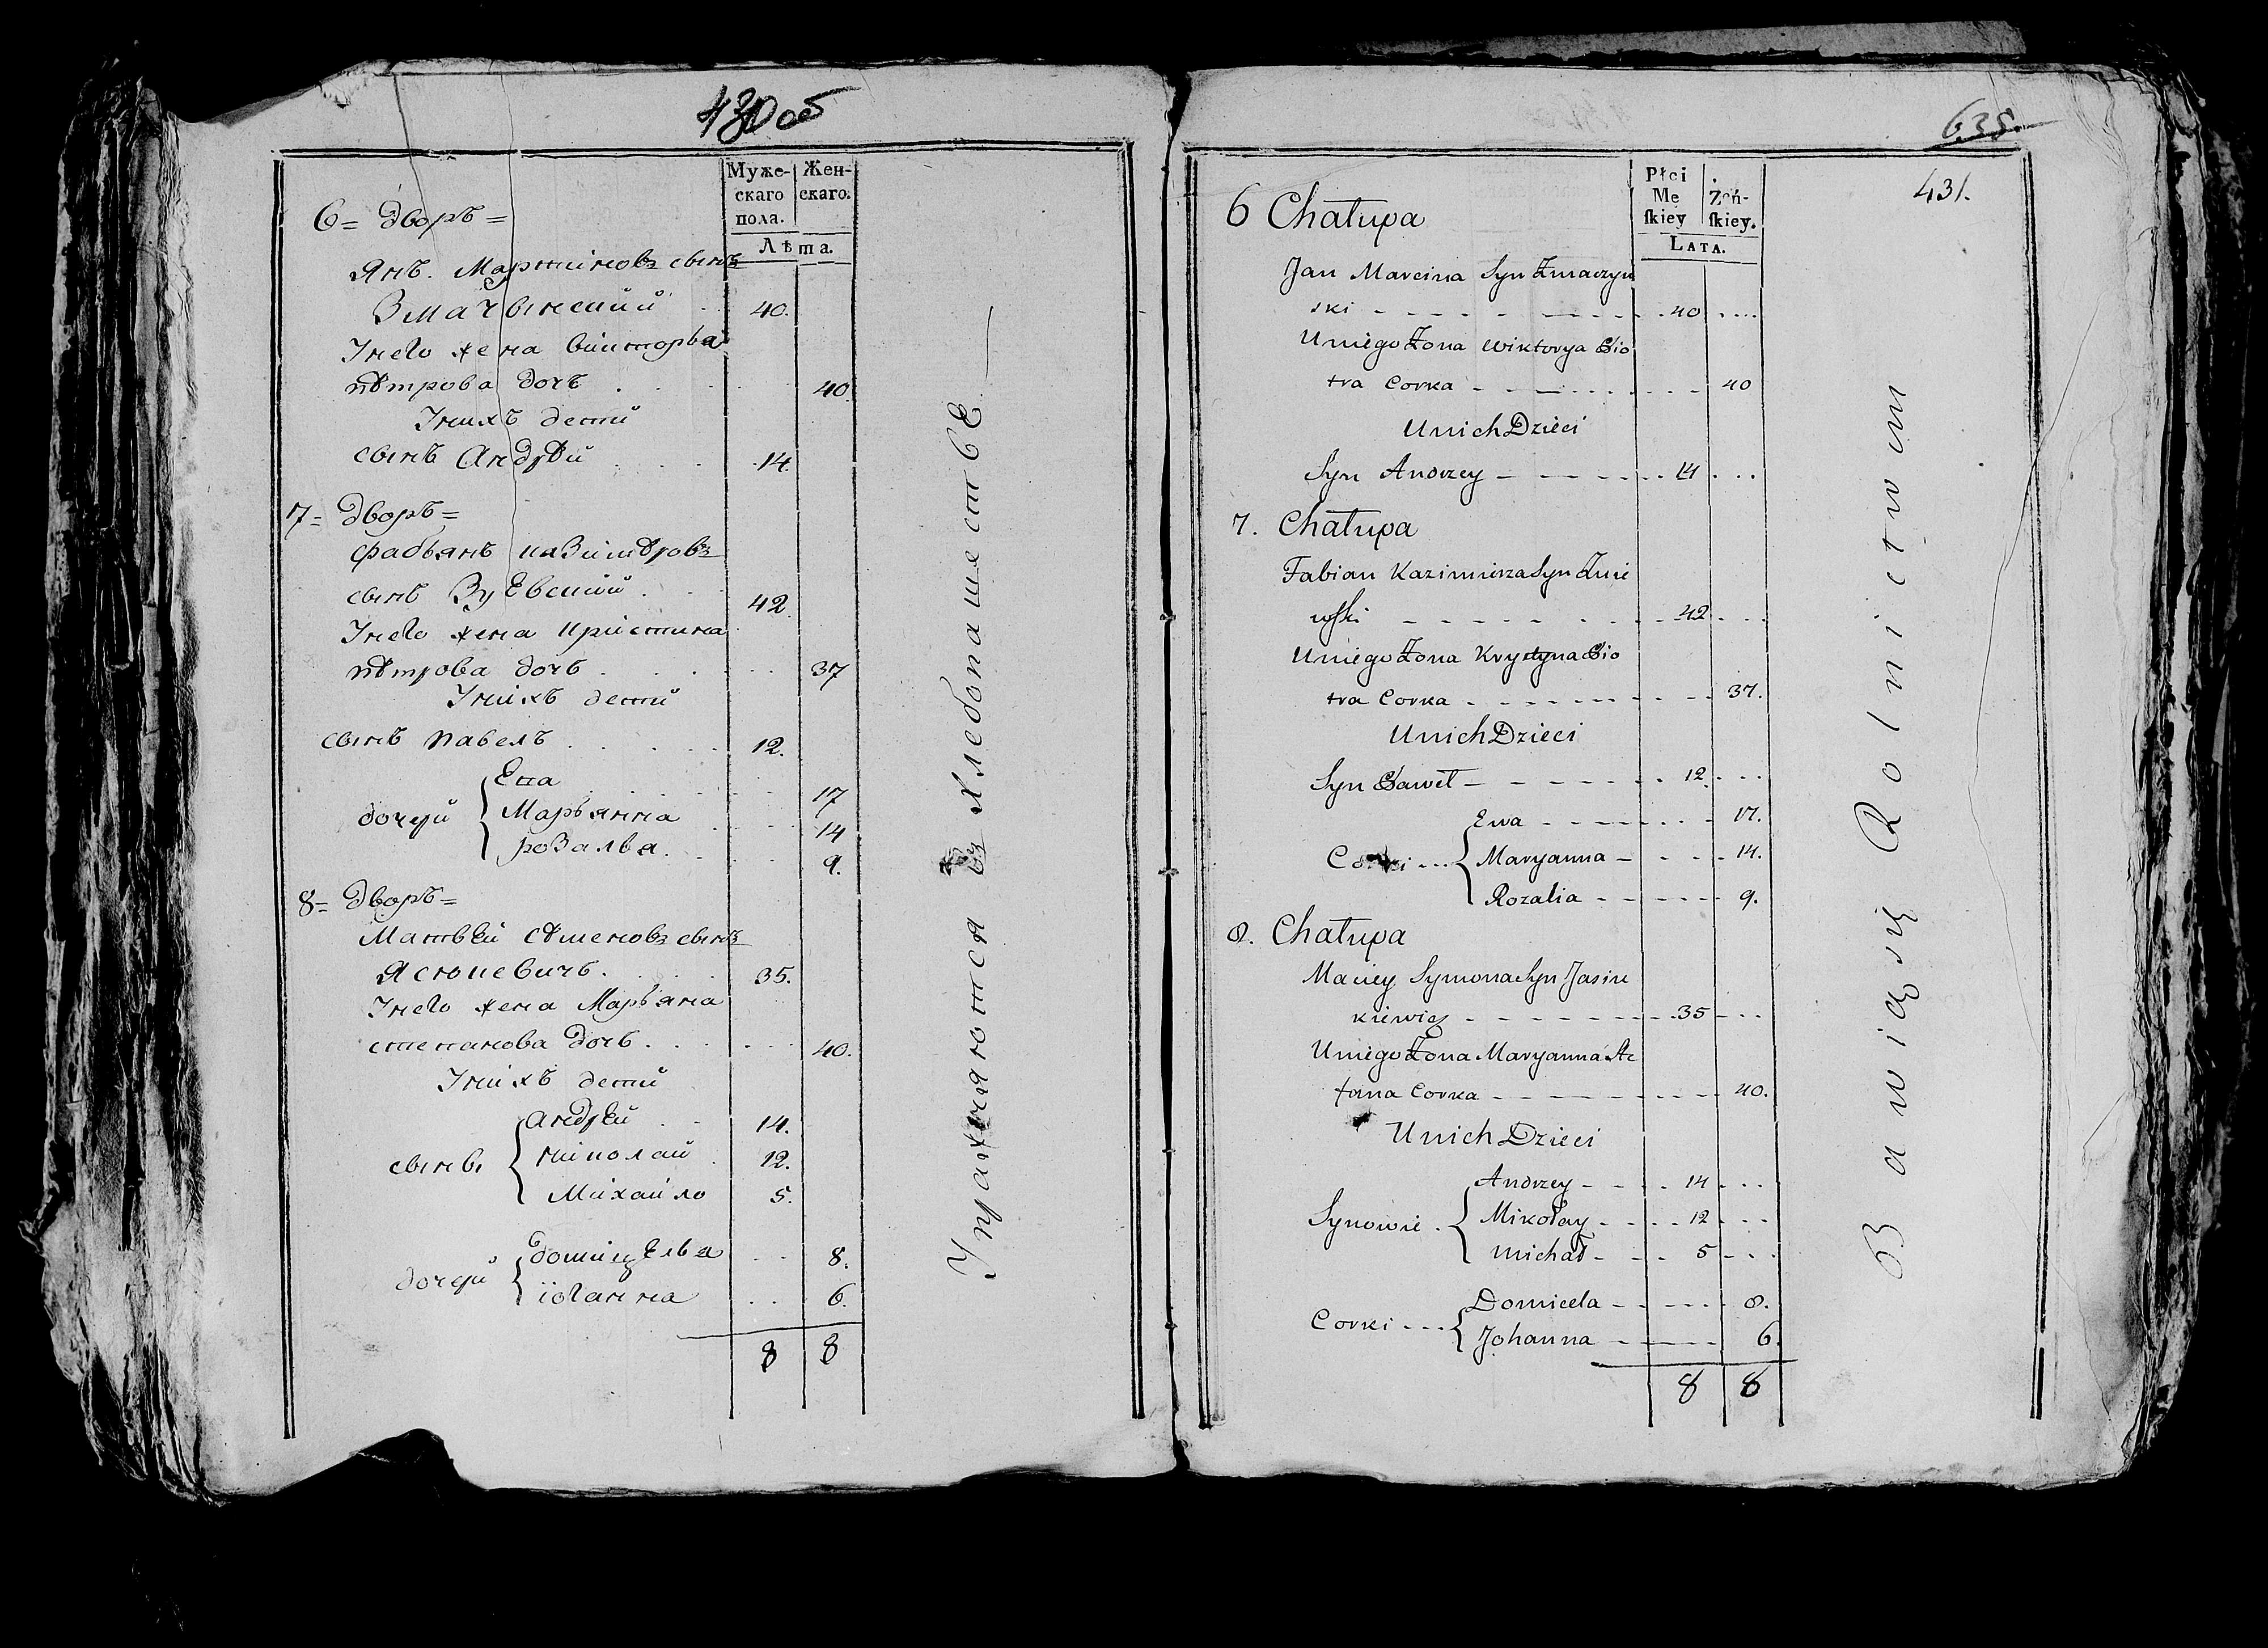 430 об
Муже-
скаго
пола.
Жен-
скаго.
Лѣта.
6 = дворъ =
Янъ Мартиновъ сынъ
Змачынский . . 40.
У него жена викторья
пѣтрова дочъ . . . 40.
У нихъ дети
сынъ Андрѣй . . . 14.
7 = дворъ =
фабьянъ казимѣровъ
сынъ . . . 42.
У него жена кристина
пѣтрова дочъ . . . 37
У нихъ дети
сынъ павелъ . . . 12.
дочери
Ева . . . 17
Марьянна . . . 14
розалья . . . 9.
8 = дворъ =
Матвѣй сѣменовъ сынъ
. . . 35.
У него жена Марьяна
степанова дочъ . . . 40.
У нихъ дети
сыны
андрѣй . . 14.
николай . 12.
Михайло 5.
дочери
домицѣлья . . 8.
іоганна . . . 6.
8 8
Упражняются въ хлебопашестве
635.
431.
Płci
Mę
skiey
Żeń-
skiey.
LATA.
6 Chałupa
Jan Marcina Syn Zmaczyń
ski - - - 40 . . .
U niego Żona Wiktorya Pio
tra Corka - - - 40
U nich Dzieci
Syn Andrzey - - - 14 . . .
7. Chałupa
Fabian Kazimierza Syn
wski - - - 42 . . .
U niego Żona Krystyna Pio
tra Corka - - - 37.
U nich Dzieci
Syn Paweł - - - 12 . . .
Corki . . .
Ewa - - - 17.
Maryanna - - - 14.
Rozalia - - - 9.
8. Chałupa
Maciey Symona Syn Jasin
kiewicz - - - 35 - - -
U niego Żona Maryanna Ste
fana Corka - - - 40.
U nich Dzieci
Synowie .
Andrzey - - - 14 . . .
Mikołay - - - 12 - - -
Michał - - - 5 - - -
Corki . . .
Domicela - - - 8.
Johanna - - - 6.
8 8
Bawią się Rolnictwem